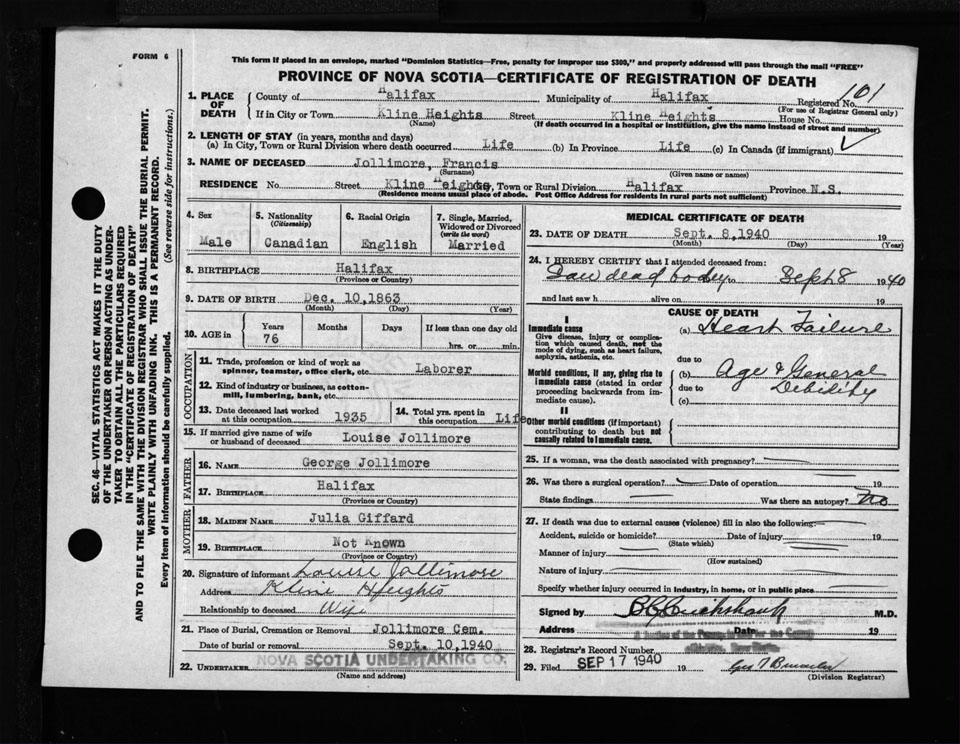 FORM 6
This form if placed in an envelope, marked "Dominion Statistics—Free, penalty for improper use $300," and properly addressed will pass through the mail "FREE"
PROVINCE OF NOVA SCOTIA—CERTIFICATE OF REGISTRATION OF DEATH
SEC. 46—VITAL STATISTICS ACT MAKES IT THE DUTY
OF THE UNDERTAKER OR PERSON ACTING AS UNDER-
TAKER TO OBTAIN ALL THE PARTICULARS REQUIRED
IN THE "CERTIFICATE OF REGISTRATION OF DEATH"
AND TO FILE THE SAME WITH THE DIVISION REGISTRAR WHO SHALL ISSUE THE BURIAL PERMIT.
WRITE PLAINLY WITH UNFADING INK. THIS IS A PERMANENT RECORD.
Every item of information should be carefully supplied. (See reverse side for instructions.)
1. PLACE OF DEATH
County of Halifax Municipality of Halifax Registered No. 101
(For use of Registrar General only)
If in City or Town Kline Heights Street Kline Heights House No.
(Name) (If death occurred in a hospital or institution, give the name instead of street and number)
2. LENGTH OF STAY (in years, months and days)
(a) In City, Town or Rural Division where death occurred Life (b) In Province Life (c) In Canada (if immigrant)
3. NAME OF DECEASED Jollimore, Francis
(Surname) (Given name or names)
RESIDENCE No. Street Kline Heights City, Town or Rural Division Halifax Province N.S.
(Residence means usual place of abode. Post Office Address for residents in rural parts not sufficient)
4. Sex Male
5. Nationality (Citizenship) Canadian
6. Racial Origin English
7. Single, Married, Widowed or Divorced (write the word) Married
8. BIRTHPLACE Halifax
(Province or Country)
9. DATE OF BIRTH Dec. 10,1863
(Month) (Day) (Year)
10. AGE in Years 76 Months Days If less than one day old
hrs. or min.
OCCUPATION
11. Trade, profession or kind of work as spinner, teamster, office clerk, etc. Laborer
12. Kind of industry or business, as cotton-mill, lumbering, bank, etc.
13. Date deceased last worked at this occupation 1935
14. Total yrs. spent in this occupation Life
15. If married give name of wife or husband of deceased Louise Jollimore
FATHER
16. NAME George Jollimore
17. BIRTHPLACE Halifax
(Province or Country)
MOTHER
18. MAIDEN NAME Julia Giffard
19. BIRTHPLACE Not Known
(Province or Country)
20. Signature of informant Louise Jollimore
Address Kline Heights
Relationship to deceased Wife
21. Place of Burial, Cremation or Removal Jollimore Cem.
Date of burial or removal Sept. 10,1940
22. UNDERTAKER NOVA SCOTIA UNDERTAKING CO.
(Name and address)
MEDICAL CERTIFICATE OF DEATH
23. DATE OF DEATH Sept. 8,1940 19
(Month) (Day) (Year)
24. I HEREBY CERTIFY that I attended deceased from:
Saw dead body to Sept 8 1940
and last saw h alive on 19
CAUSE OF DEATH
I
Immediate cause
Give disease, injury or complication which caused death, not the mode of dying, such as heart failure, asphyxia, asthenia, etc.
(a) Heart Failure
due to
Morbid conditions, if any, giving rise to immediate cause (stated in order proceeding backwards from immediate cause).
(b) Age & General Debility
due to
(c)
II
Other morbid conditions (if important) contributing to death but not causally related to immediate cause.
25. If a woman, was the death associated with pregnancy?
26. Was there a surgical operation? Date of operation 19
State findings Was there an autopsy? no
27. If death was due to external causes (violence) fill in also the following:
Accident, suicide or homicide? Date of injury 19
(State which)
Manner of injury
(How sustained)
Nature of injury
Specify whether injury occurred in industry, in home, or in public place
Signed by M.D.
Address Date 19
28. Registrar's Record Number
29. Filed SEP 17 1940 19
(Division Registrar)